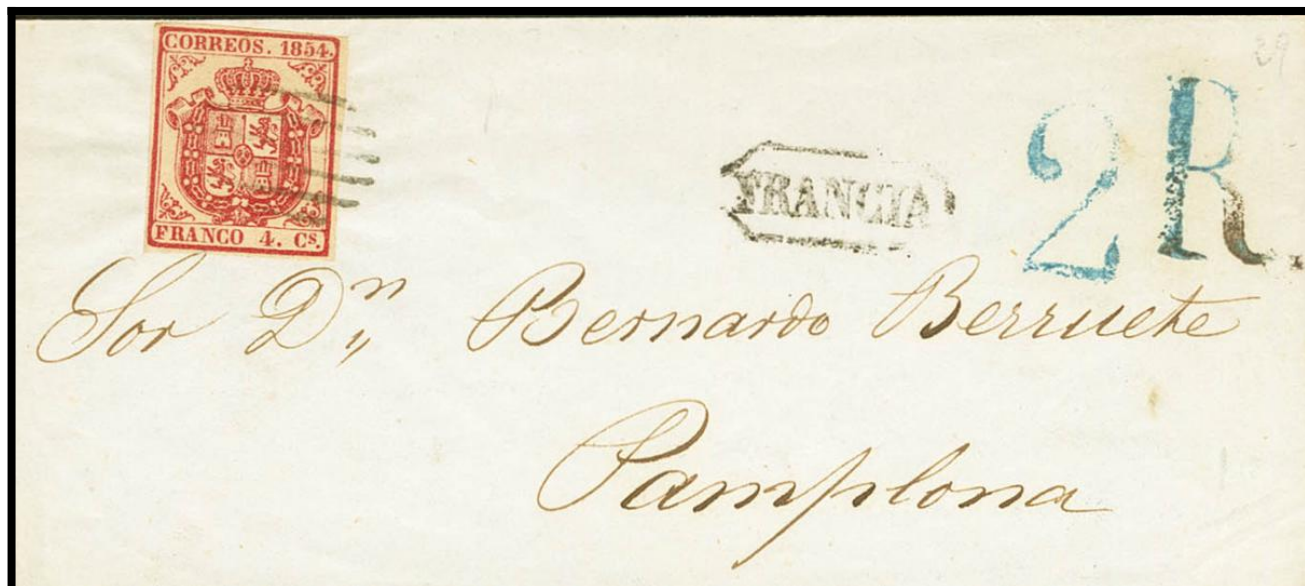 CORREOS. 1854.
FRANCO 4. Cs.
FRANCIA
2R.
Sor Dn Bernardo Berruete
Pamplona